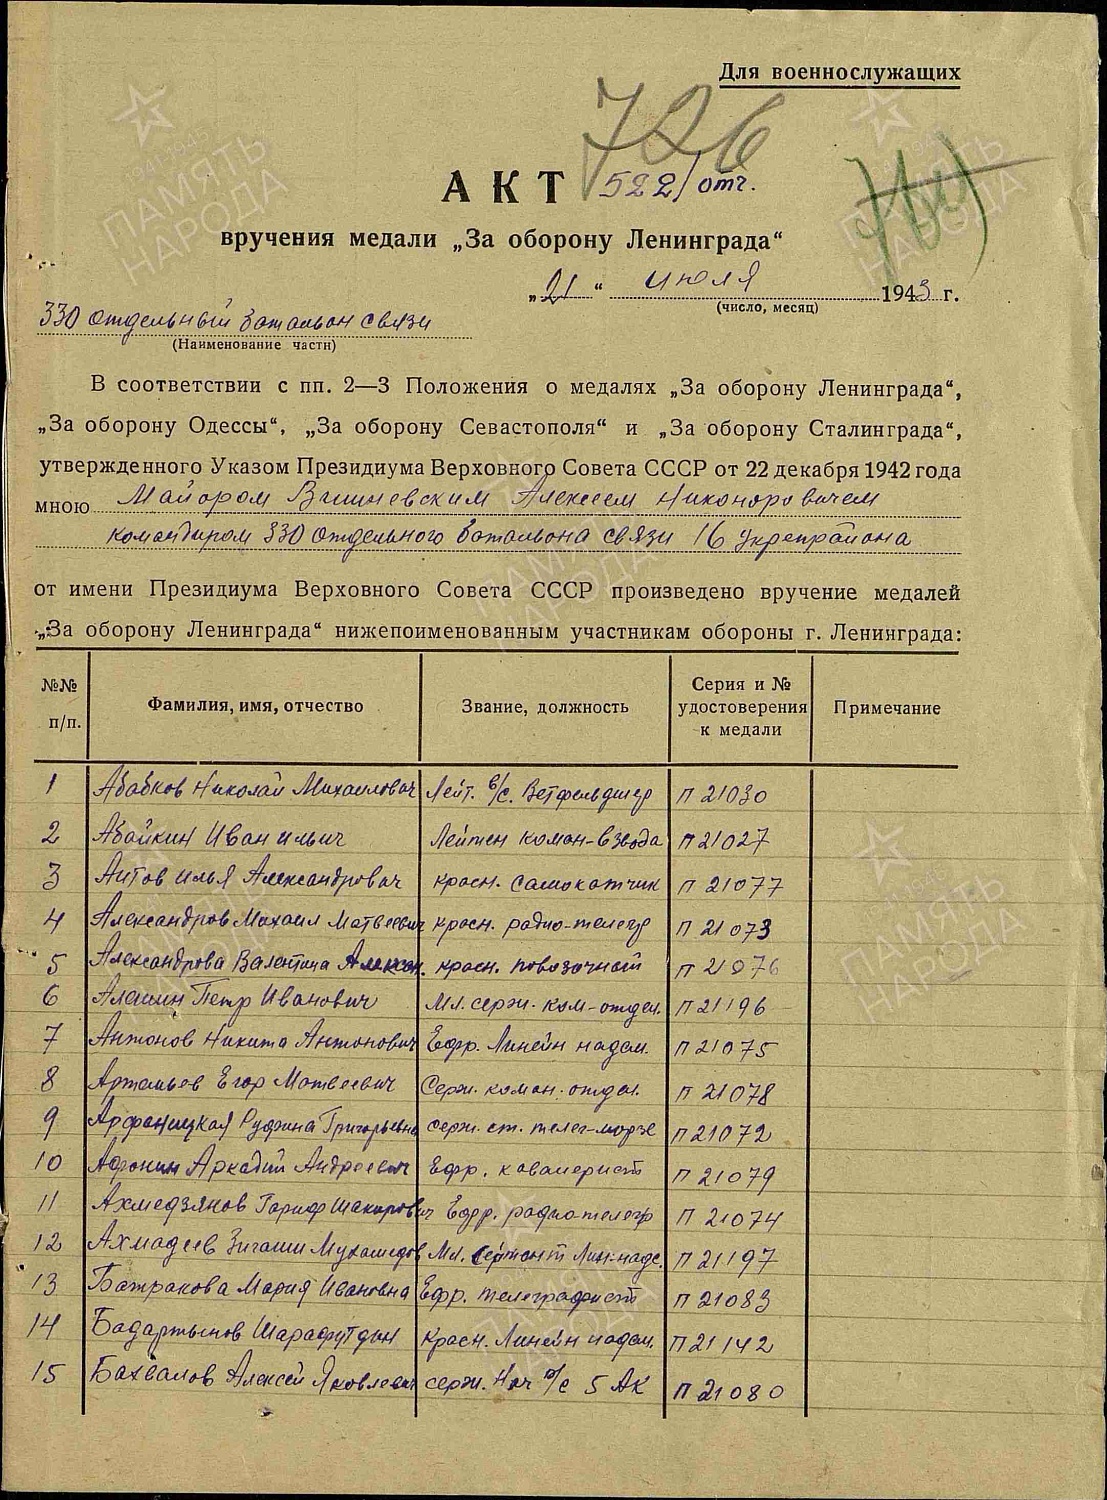 Для военнослужащих
726
АКТ 522/отч.
вручения медали „За оборону Ленинграда“
„21“ июля 1943 г.
(число, месяц)
330 отдельный батальон связи
(Наименование части)
В соответствии с пп. 2—3 Положения о медалях „За оборону Ленинграда“,
„За оборону Одессы“, „За оборону Севастополя“ и „За оборону Сталинграда“,
утвержденного Указом Президиума Верховного Совета СССР от 22 декабря 1942 года
мною Майором Вишневским Алексеем Никоноровичем
командиром 330 отдельного батальона связи 16 укрепрайона
от имени Президиума Верховного Совета СССР произведено вручение медалей
„За оборону Ленинграда“ нижепоименованным участникам обороны г. Ленинграда:
№№ п/п. Фамилия, имя, отчество Звание, должность Серия и № удостоверения к медали Примечание
1 Абабков Николай Михайлович Лейт. в/с. Ветфельдшер П 21030
2 Абайкин Иван Ильич Лейтен коман-взвода П 21027
3 Аитов Илья Александрович красн. самокатчик П 21077
4 Александров Михаил Матвеевич красн. радио-телегр П 21073
5 Александрова Валентина Алексан. красн. повозочный П 21076
6 Алешин Петр Иванович Мл. серж. ком-отдел. П 21196
7 Антонов Никита Антонович Ефр. Линейн надсм. П 21075
8 Артемьев Егор Матвеевич Серж. коман. отдел. П 21078
9 Руфина Григорьевна серж. ст. телег-морзе П 21072
10 Афонин Аркадий Андреевич Ефр. кавалерист П 21079
11 Ахмедзянов Гариф Шакирович Ефр. радио-телегр П 21074
12 Ахмадеев Мухамедов Мл. Сержант Лин-надс. П 21197
13 Батракова Мария Ивановна Ефр. телеграфист П 21083
14 Шарафутдин Красн. Линейн надсм. П 21142
15 Бахвалов Алексей Яковлевич серж. Нач р/с 5 АК П 21080
ПАМЯТЬ НАРОДА
1941-1945